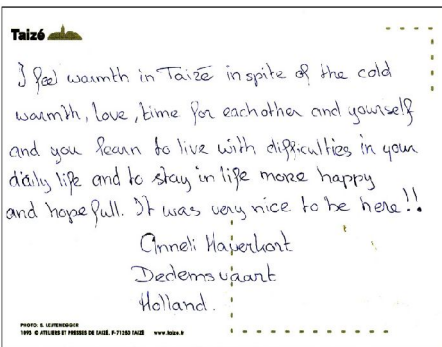 Taizé
I feel warmth in Taizé in spite of the cold
warmth, love, time for eachother and yourself
and you learn to live with difficulties in your
daily life and to stay in life more happy
and hopefull. It was very nice to be here!!
Anneli Haverkort
Dedemsvaart
Holland.
PHOTO: S. LEUTENEGGER
1095 © ATELIERS ET PRESSES DE TAIZÉ, F-71250 TAIZÉ www.taize.fr